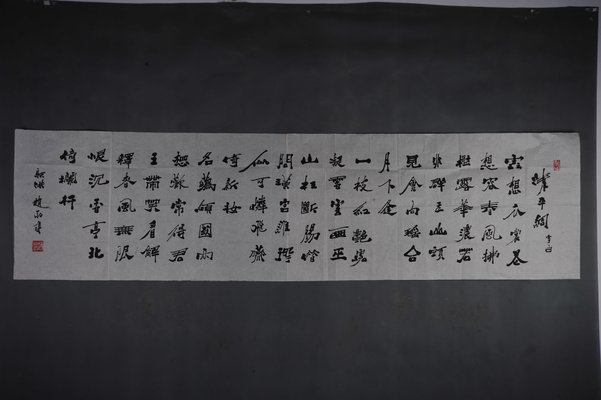 清平調 李白
雲想衣裳花
想容春風拂
檻露華濃若
非群玉山頭
見會向瑤台
月下逢
一枝紅艷露
凝香雲雨巫
山枉斷腸借
問漢宮誰得
似可憐飛燕
倚新妝
名花傾國兩
相歡常得君
王帶笑看解
釋春風無限
恨沉香亭北
倚欄杆